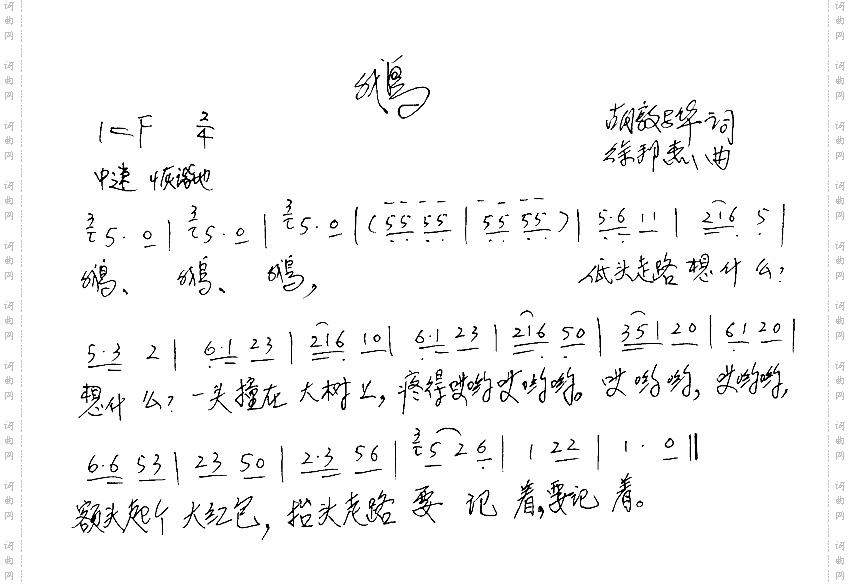 鹅
1=F 2/4
胡敦华词
徐邦杰曲
中速 恢谐地
3 5· 0 | 3 5· 0 | 3 5· 0 | (55 55 | 55 55) | 5·6 11 | 216 5 |
鹅、 鹅、 鹅, 低头走路想什么?
5·3 2 | 6·1 23 | 216 10 | 6·1 23 | 216 50 | 351 20 | 61 20 |
想什么?一头撞在大树上,疼得哎哟哎哟哟。哎哟哟,哎哟哟,
6·6 53 | 23 50 | 2·3 56 | 3 5 2 6 | 1 22 | 1· 0 ‖
额头起个大红包,抬头走路要记着,要记着。
词曲网